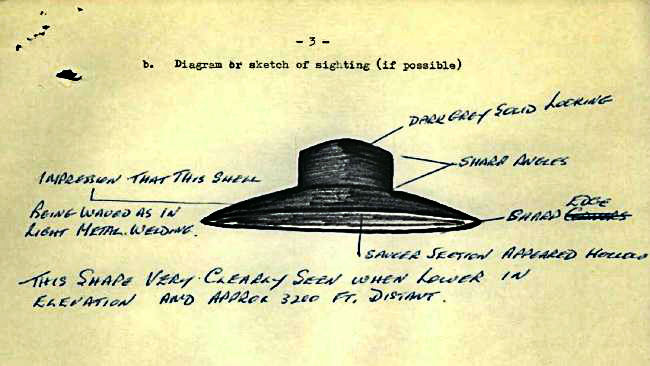 - 3 -
b. Diagram or sketch of sighting (if possible)
DARK GREY SOLID LOOKING
SHARP ANGLES
IMPRESSION THAT THIS SHELL
BEING WAVED AS IN
LIGHT METAL WELDING.
EDGE
SHARP
SAUCER SECTION APPEARED HOLLOW
THIS SHAPE VERY CLEARLY SEEN WHEN LOWER IN
ELEVATION AND APPROX 3200 FT. DISTANT.